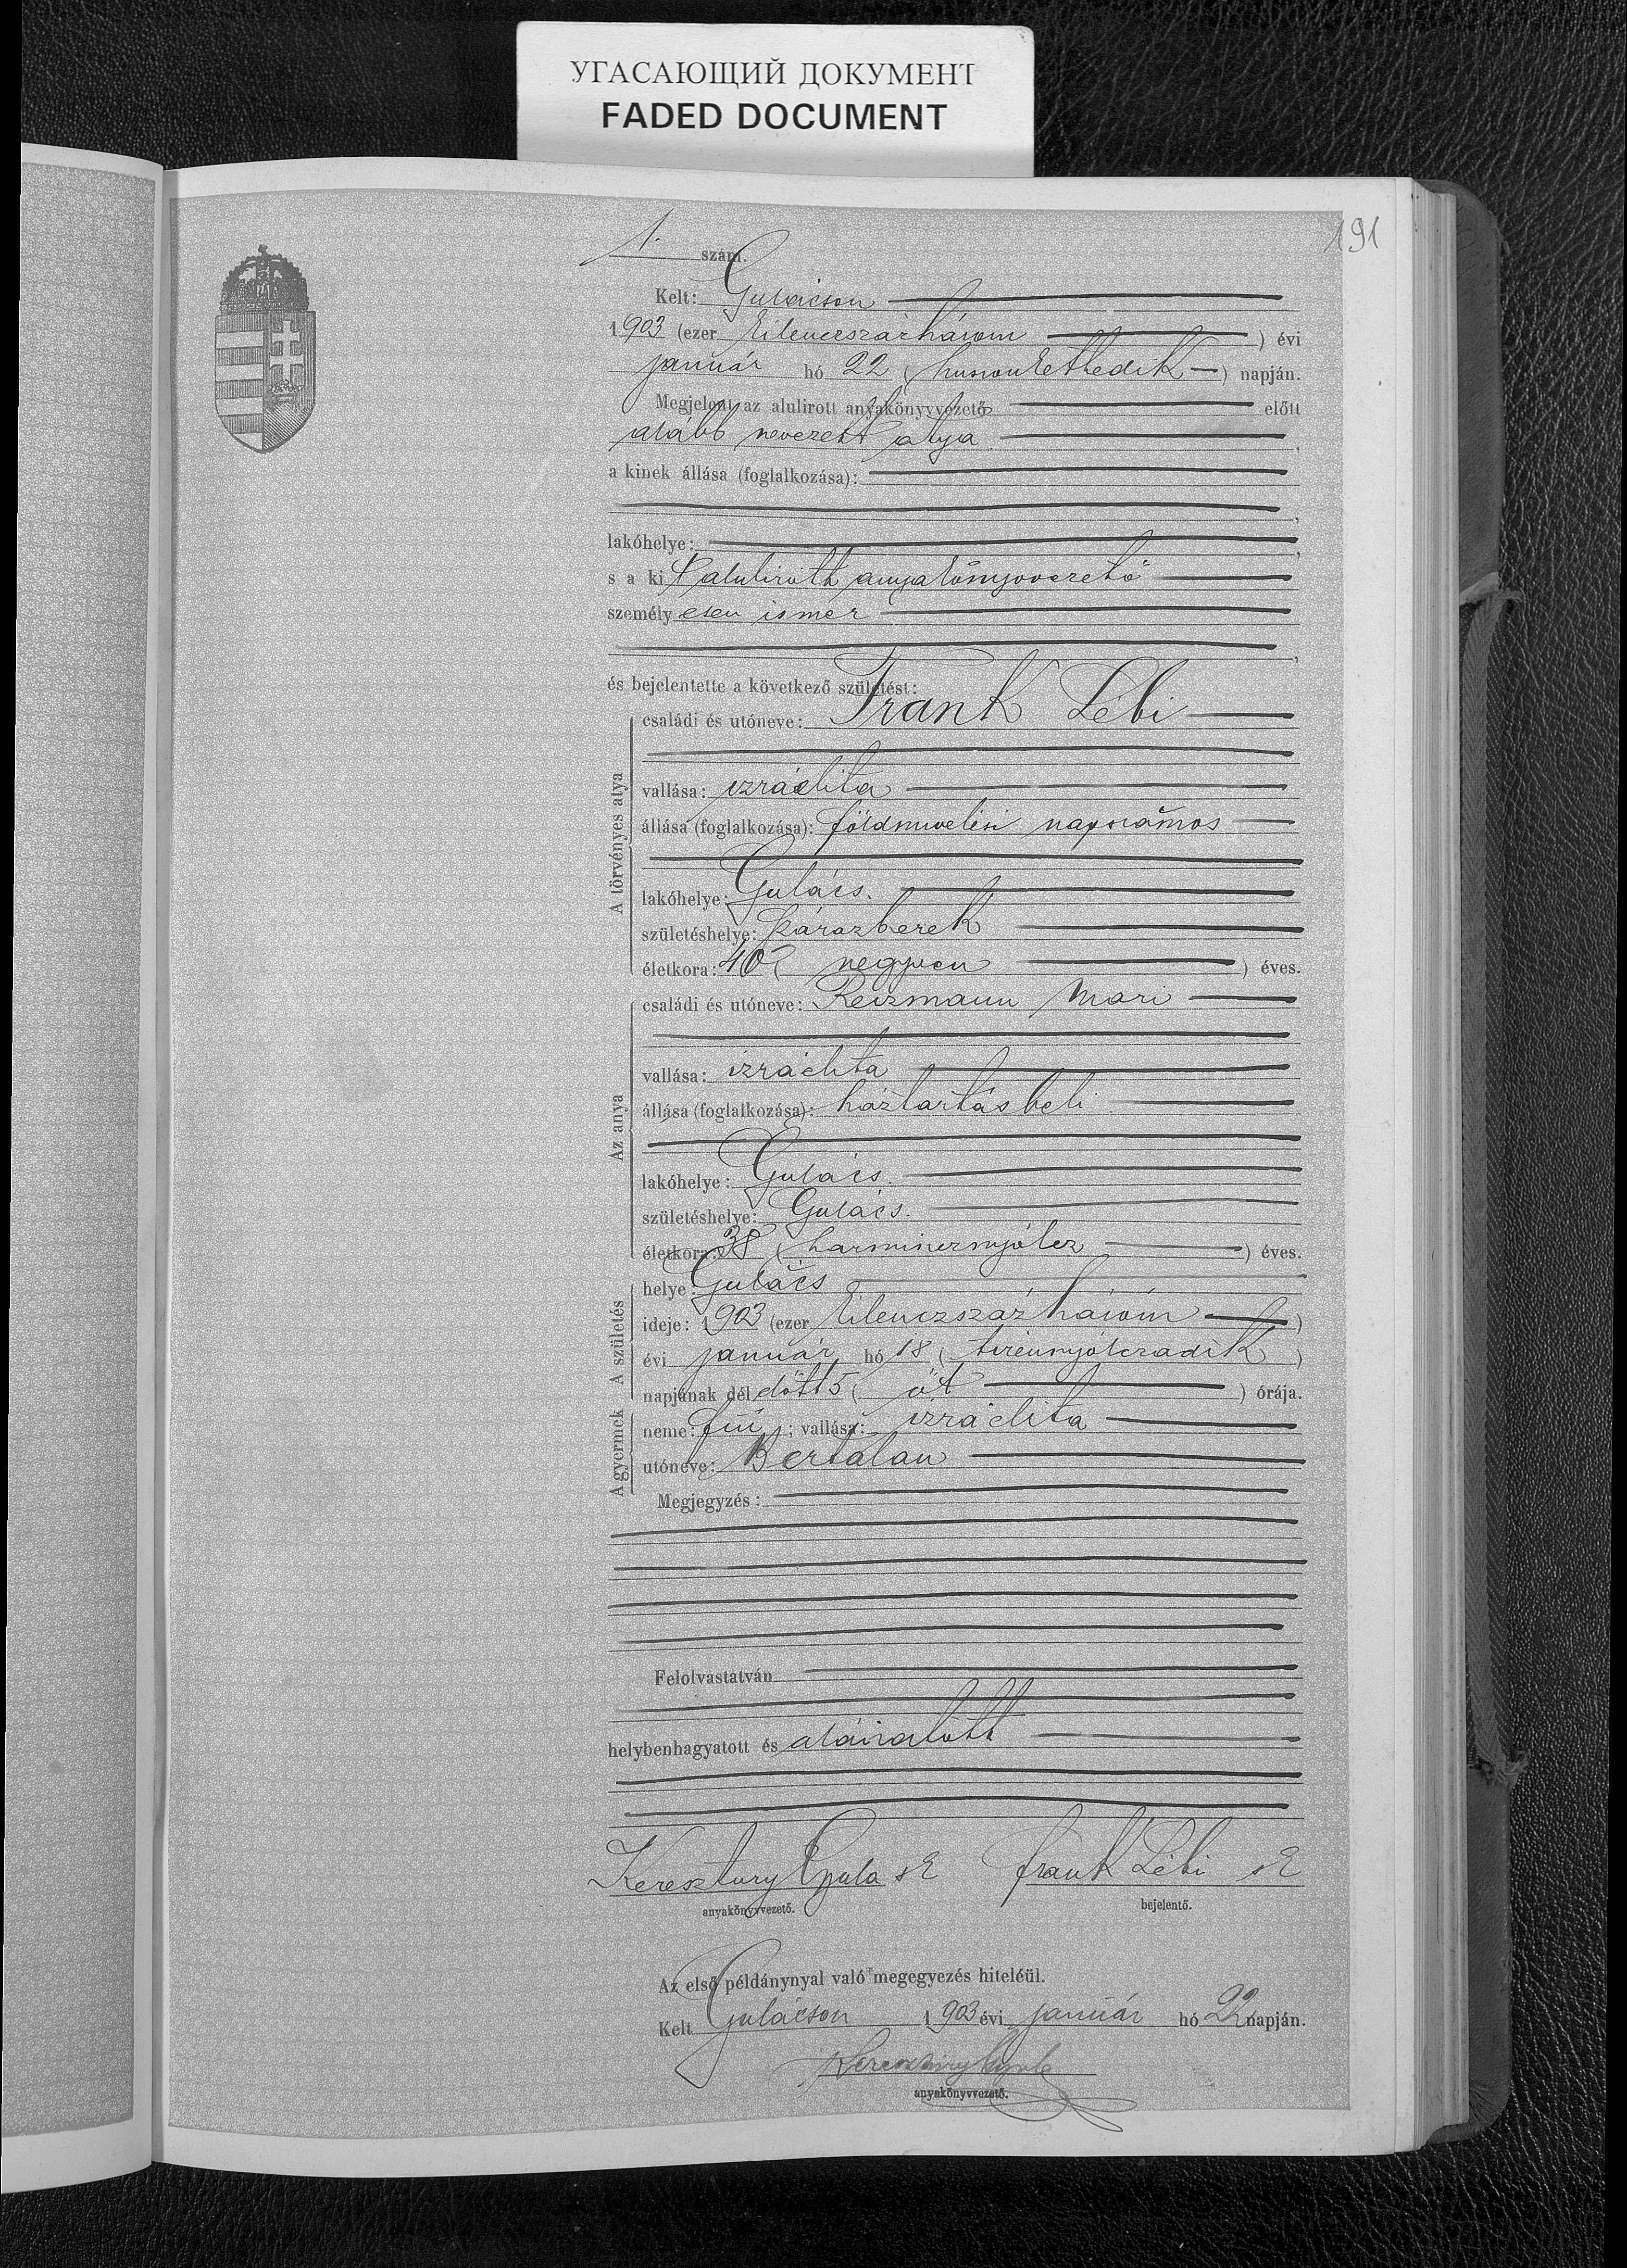 УГАСАЮЩИЙ ДОКУМЕНТ
FADED DOCUMENT
191
1. szám.
Kelt: Gulácson
1903 (ezer kilenczszázhárom) évi
január hó 22 (huszonkettedik) napján.
Megjelent az alulirott anyakönyvvezető előtt
alább nevezett atya,
a kinek állása (foglalkozása):
lakóhelye:
s a ki alulirott anyakönyvvezető
személyesen ismer
és bejelentette a következő születést:
A törvényes atya
családi és utóneve: Frank Lébi
vallása: izráelita
állása (foglalkozása): földmivelési napszámos
lakóhelye: Gulács.
születéshelye: Szárazberek
életkora: 40 (negyven) éves.
Az anya
családi és utóneve: Reizmann Mari
vallása: izráelita
állása (foglalkozása): háztartásbeli
lakóhelye: Gulács.
születéshelye: Gulács.
életkora: 38 (harmincznyólcz) éves.
A születés
helye: Gulács
ideje: 1903 (ezer kilenczszázhárom)
évi január hó 18 (tizennyólczadik)
napjának délelőtt 5 (öt) órája.
A gyermek
neme: fiú; vallása: izráelita
utóneve: Bertalan
Megjegyzés:
Felolvastatván
helybenhagyatott és aláiratott
Keresztury Gyula sk Frank Lébi sk
anyakönyvvezető. bejelentő.
Az első példánynyal való megegyezés hiteléül.
Kelt Gulácson 1903 évi január hó 22 napján.
Keresztury Gyula
anyakönyvvezető.